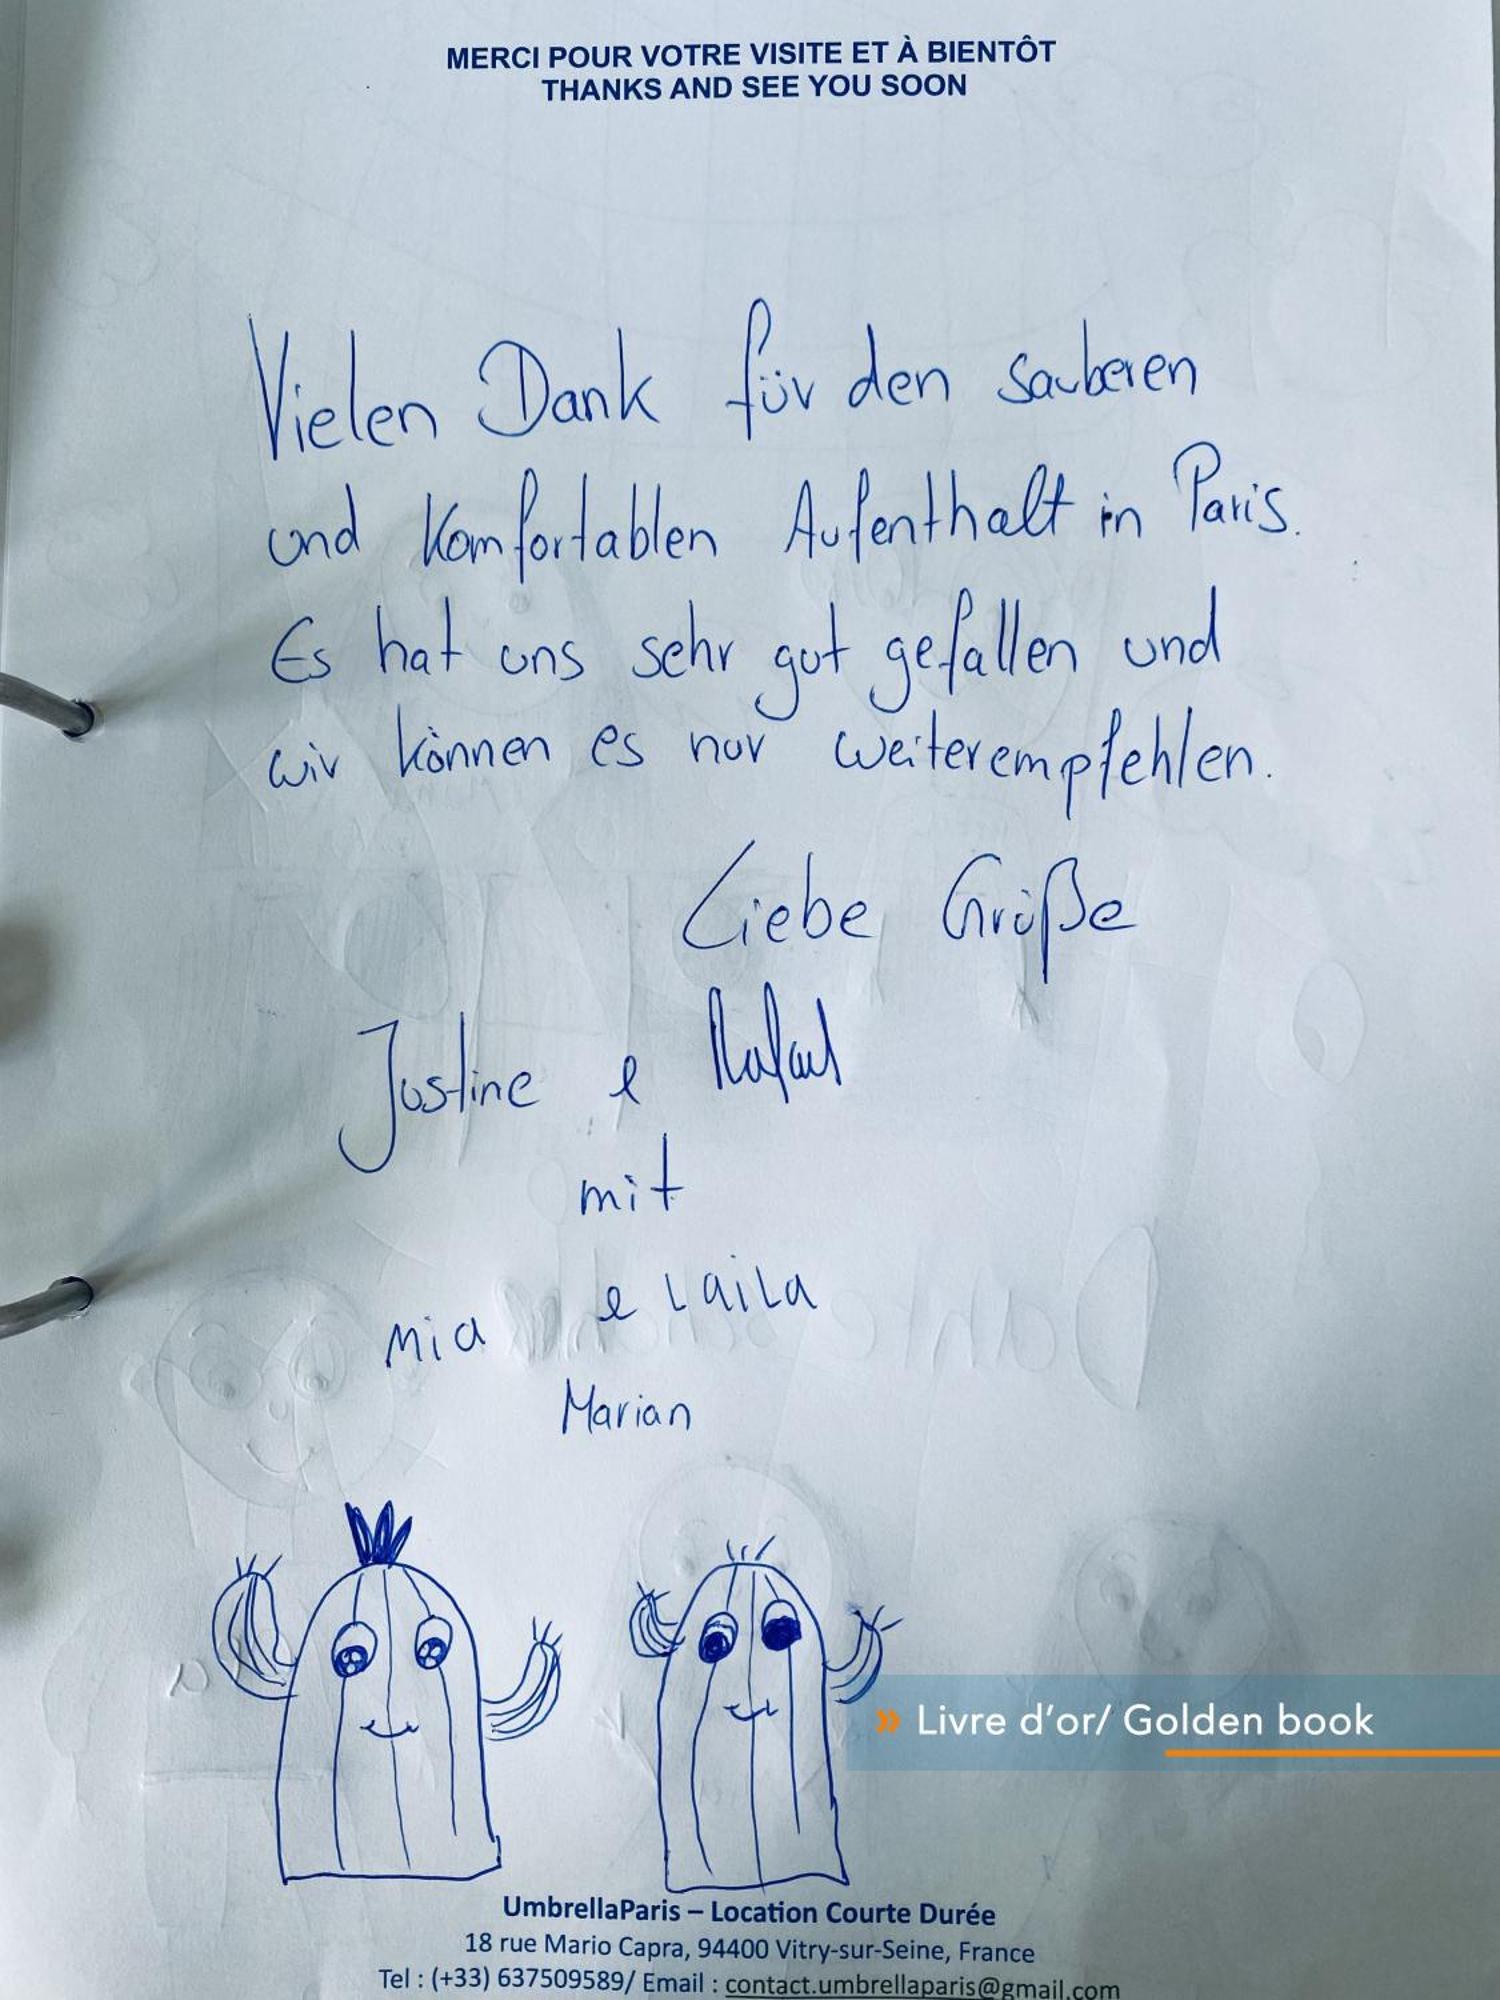 MERCI POUR VOTRE VISITE ET À BIENTÔT
THANKS AND SEE YOU SOON
Vielen Dank für den sauberen
und Komfortablen Aufenthalt in Paris.
Es hat uns sehr gut gefallen und
wir können es nur weiterempfehlen.
Liebe Grüße
Justine & Rafael
mit
Mia & Laila
Marian
» Livre d'or/ Golden book
UmbrellaParis – Location Courte Durée
18 rue Mario Capra, 94400 Vitry-sur-Seine, France
Tel : (+33) 637509589/ Email : contact.umbrellaparis@gmail.com